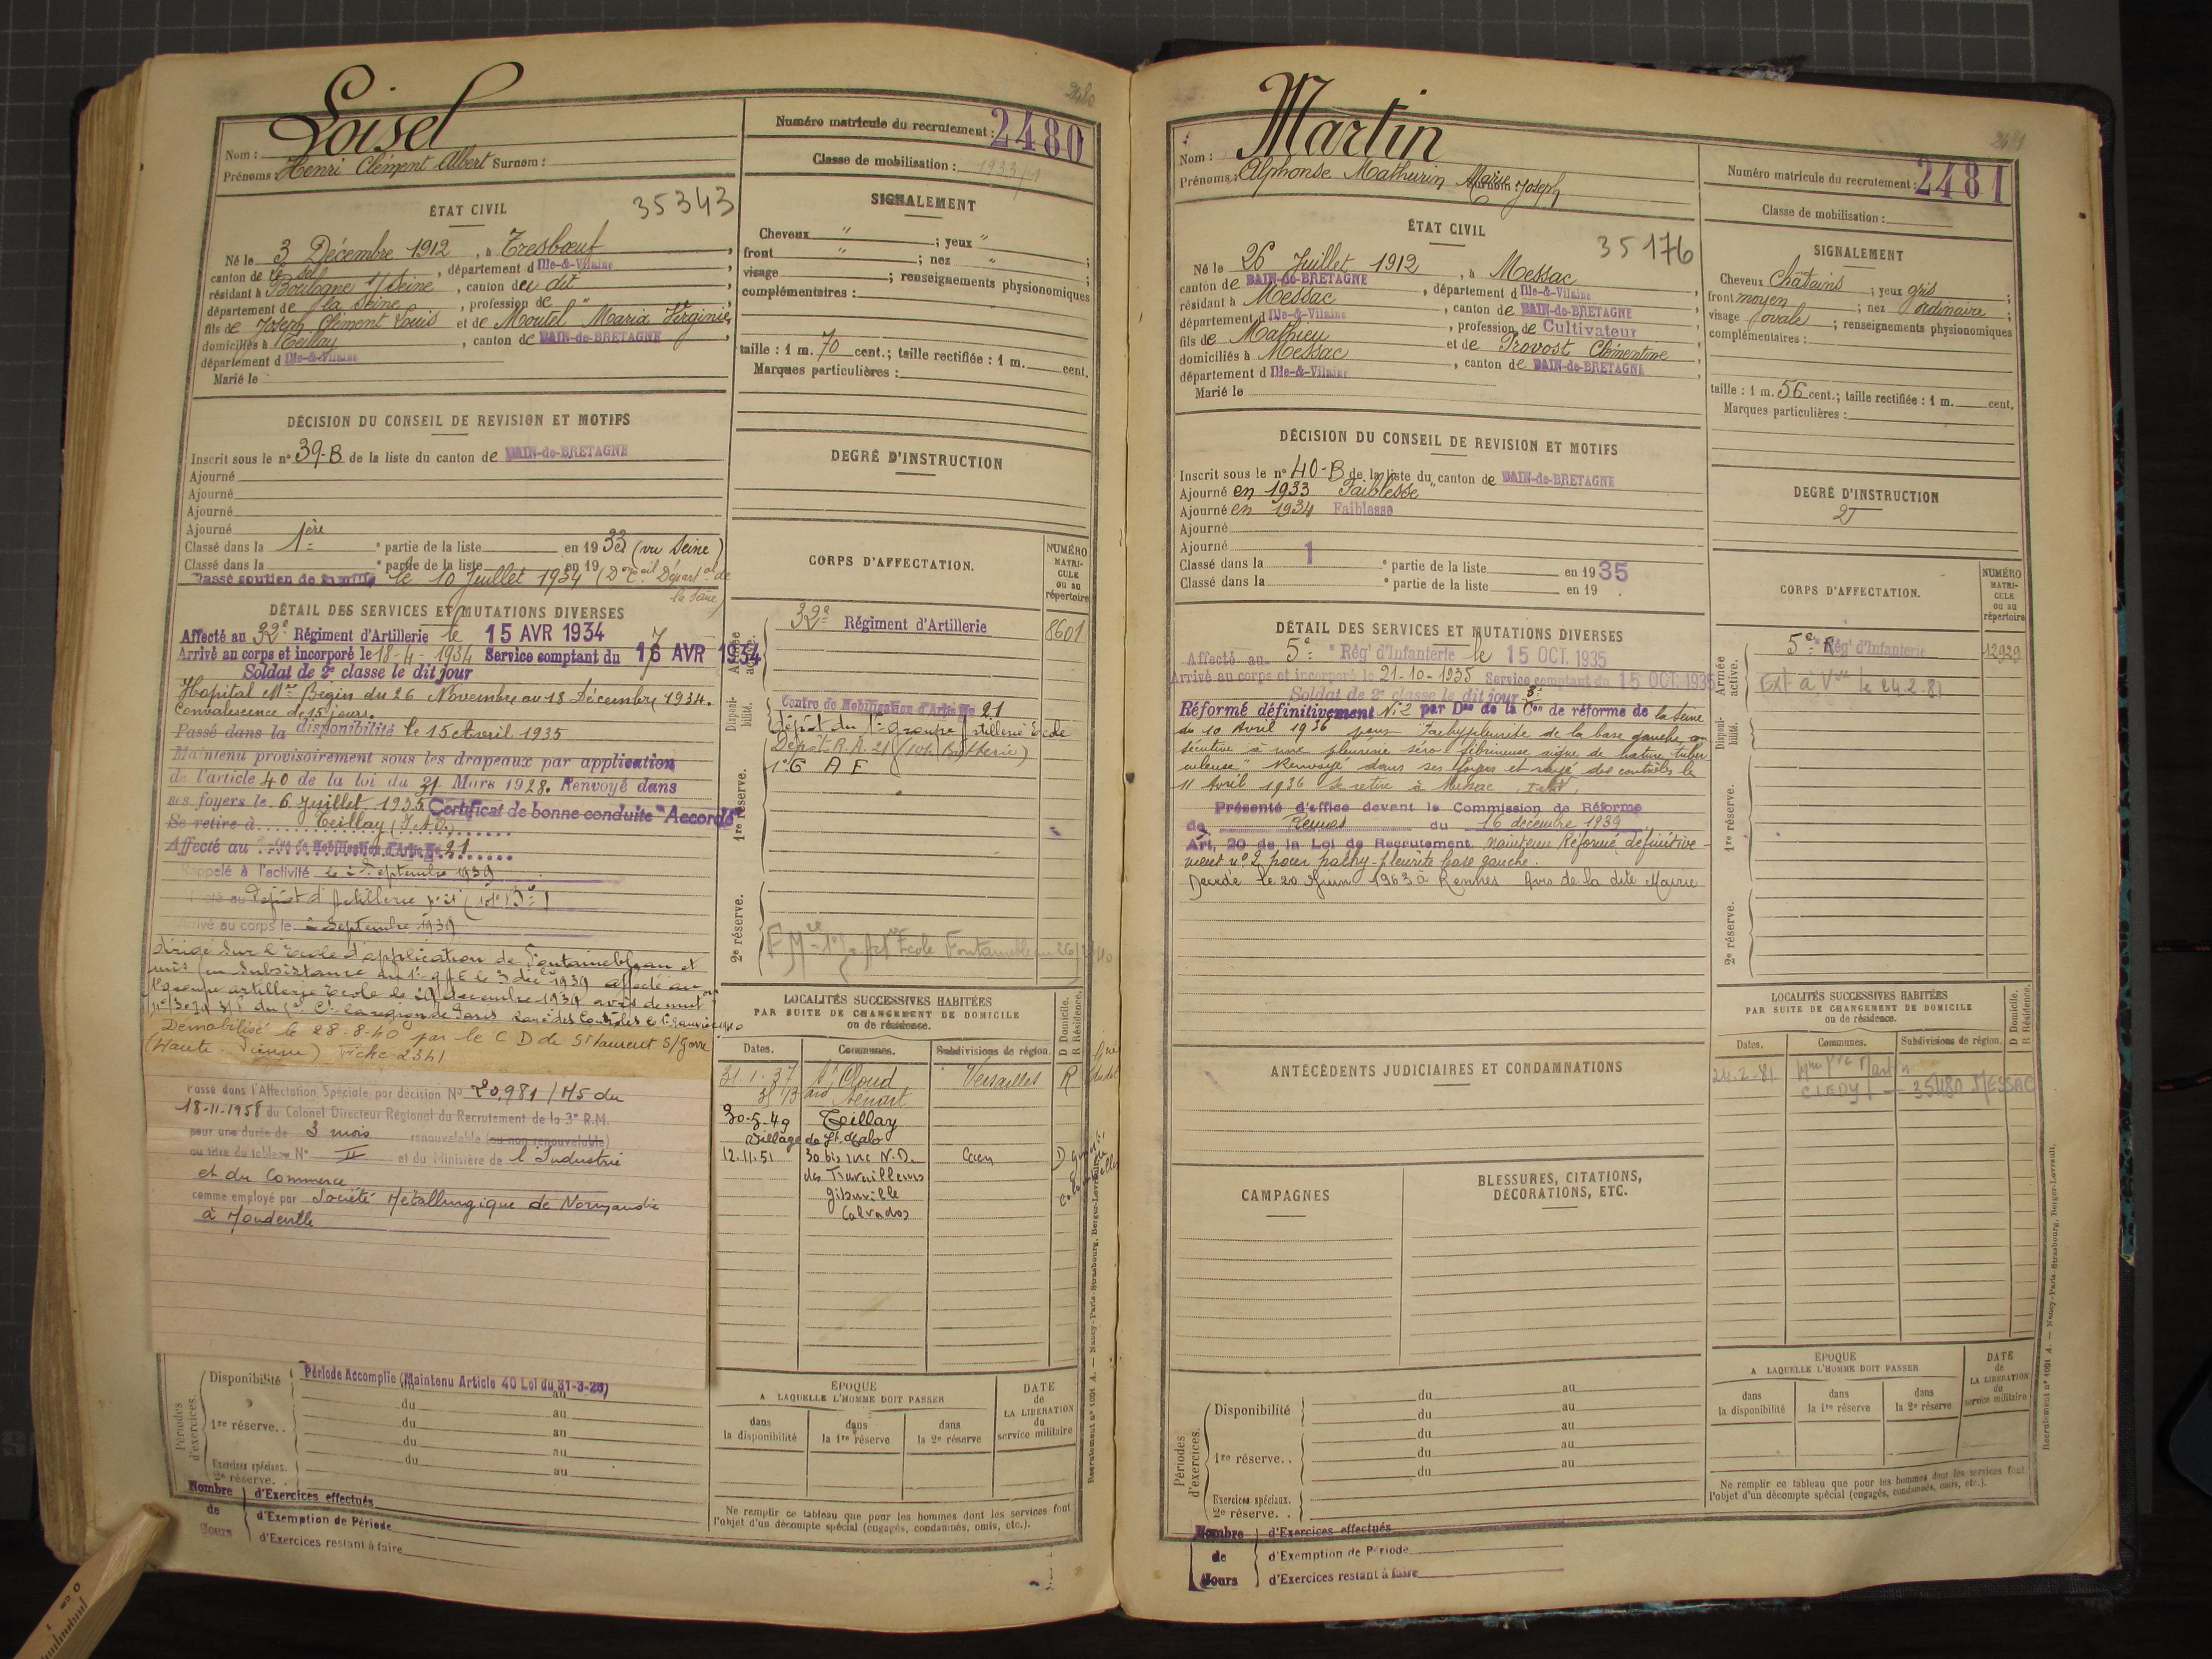 2480
Loisel
Nom :
Prénoms : Henri Clément Albert Surnom :
Numéro matricule du recrutement : 2480
Classe de mobilisation : 1933/1
35343
ÉTAT CIVIL
Né le 3 Décembre 1912, à Tresboeuf
canton de Le Sel, département d Ille-&-Vilaine
résidant à Boulogne s/Seine, canton du dit
département de la Seine, profession de "
fils de Joseph Clément Louis et de Moutel Maria Virginie
domiciliés à Teillay, canton de BAIN-de-BRETAGNE
département d Ille-&-Vilaine
Marié le
SIGNALEMENT
Cheveux " ; yeux " ;
front " ; nez " ;
visage ; renseignements physionomiques
complémentaires :
taille : 1 m. 70 cent.; taille rectifiée : 1 m. cent.
Marques particulières :
DÉCISION DU CONSEIL DE REVISION ET MOTIFS
Inscrit sous le nº 39-B de la liste du canton de BAIN-de-BRETAGNE
Ajourné
Ajourné
Ajourné
Ajourné
Classé dans la 1ère partie de la liste en 1933 (vu Seine)
Classé dans la partie de la liste en 19
Classé soutien de famille le 10 Juillet 1934 (Don Cil Départal de
la Seine)
DEGRÉ D'INSTRUCTION
DÉTAIL DES SERVICES ET MUTATIONS DIVERSES
Affecté au 32e Régiment d'Artillerie le 15 AVR 1934
Arrivé au corps et incorporé le 18-4-1934 Service comptant du 16 AVR 1934
Soldat de 2e classe le dit jour
Hopital Mre Begin du 26 Novembre au 18 Décembre 1934.
Convalescence de 15 jours.
Passé dans la disponibilité le 15 Avril 1935
Maintenu provisoirement sous les drapeaux par application
de l'article 40 de la loi du 31 Mars 1928. Renvoyé dans
ses foyers le 6 Juillet 1935 Certificat de bonne conduite "Accordé"
Se retire à Teillay (I.&V.)
Affecté au Centre de Mobilisation d'Artie No 21
Rappelé à l'activité le 2 Septembre 1939
Affecté au Dépôt d'Artillerie nº 21
Arrivé au corps le 2 Septembre 1939
Dirigé sur l'Ecole d'application de Fontainebleau et
mis en Subsistance au 1er g A E le 3 déc 1939 affecté au
1er groupe artillerie Ecole le 29 décembre 1939 avis de muton
région de Paris rayé des Contrôles le 1er Janvier 1940
Démobilisé le 28-8-40 par le C D de St Laurent S/Gorre
(Haute-Vienne) Fiche 2341
Passé dans l'Affectation Spéciale par décision No 20.981/M5 du
18-11-1958 du Colonel Directeur Régional du Recrutement de la 3e R.M.
pour une durée de 3 mois renouvelable (ou non renouvelable)
au titre du tableau No II et du Ministère de l'Industrie
et du Commerce
comme employé par Société Métallurgique de Normandie
à Mondeville
CORPS D'AFFECTATION.
NUMÉRO MATRICULE ou au répertoire
Armée active.
32e Régiment d'Artillerie 8601
Disponibilité.
Centre de Mobilisation d'Artie No 21
Dépôt du 1er groupe Artillerie Ecole
Dépôt R.A. 21 (101e Batterie)
1er G A E
1re réserve.
2e réserve.
LOCALITÉS SUCCESSIVES HABITÉES
PAR SUITE DE CHANGEMENT DE DOMICILE
ou de résidence.
D Domicile.
R Résidence.
Dates. Communes. Subdivisions de région.
31-1-37 St Cloud Versailles R
30-5-49 Teillay
Village de St Malo
12.11.51 30 bis rue N.D. Caen D
des Travailleurs
Giberville
Calvados
Périodes d'exercices.
Disponibilité Période Accomplie (Maintenu Article 40 Loi du 31-3-28)
du au
1re réserve. du au
du au
du au
Exercices spéciaux. 2e réserve. du au
Nombre de Jours
d'Exercices effectués
d'Exemption de Période
d'Exercices restant à faire
ÉPOQUE
A LAQUELLE L'HOMME DOIT PASSER
dans la disponibilité
dans la 1re réserve
dans la 2e réserve
DATE de LA LIBÉRATION du service militaire
Ne remplir ce tableau que pour les hommes dont les services font
l'objet d'un décompte spécial (engagés, condamnés, omis, etc.).
Recrutement nº 1091 A. — Nancy-Paris-Strasbourg, Berger-Levrault.
2481
Martin
Nom :
Prénoms : Alphonse Mathurin Marie Joseph
Surnom :
Numéro matricule du recrutement : 2481
Classe de mobilisation :
35176
ÉTAT CIVIL
Né le 26 Juillet 1912, à Messac
canton de BAIN-de-BRETAGNE, département d Ille-&-Vilaine
résidant à Messac, canton de BAIN-de-BRETAGNE
département d Ille-&-Vilaine, profession de Cultivateur
fils de Mathieu et de Provost Clémentine
domiciliés à Messac, canton de BAIN-de-BRETAGNE
département d Ille-&-Vilaine
Marié le
SIGNALEMENT
Cheveux Châtains ; yeux gris ;
front moyen ; nez ordinaire ;
visage ovale ; renseignements physionomiques
complémentaires :
taille : 1 m. 56 cent.; taille rectifiée : 1 m. cent.
Marques particulières :
DÉCISION DU CONSEIL DE REVISION ET MOTIFS
Inscrit sous le nº 40-B de la liste du canton de BAIN-de-BRETAGNE
Ajourné en 1933 "Faiblesse"
Ajourné en 1934 Faiblesse
Ajourné
Ajourné
Classé dans la 1 partie de la liste en 1935
Classé dans la partie de la liste en 19
DEGRÉ D'INSTRUCTION
DÉTAIL DES SERVICES ET MUTATIONS DIVERSES
Affecté au 5e Régt d'Infanterie le 15 OCT. 1935
Arrivé au corps et incorporé le 21-10-1935 Service comptant du 15 OCT. 1935
Soldat de 2e classe le dit jour
Réformé définitivement Nº 2 par Don de la 3e Con de réforme de la Seine
du 10 Avril 1936 pour "Pachypleurite de la base gauche con
sécutive à une pleurésie séro fibrineuse signe de nature tuber
culeuse" Renvoyé dans ses foyers et rayé des contrôles le
11 Avril 1936 Se retire à Messac, I et V,
Présenté d'office devant la Commission de Réforme
de Rennes du 16 décembre 1939
Art. 20 de la Loi de Recrutement maintenu Réformé définitive-
ment nº 2 pour pachy-pleurite base gauche.
Décédé le 20 Juin 1963 à Rennes Avis de la dite Mairie
CORPS D'AFFECTATION.
NUMÉRO MATRICULE ou au répertoire
Armée active.
5e Régt d'Infanterie 12929
Ext à Vve le 24.2.81
Disponibilité.
1re réserve.
2e réserve.
LOCALITÉS SUCCESSIVES HABITÉES
PAR SUITE DE CHANGEMENT DE DOMICILE
ou de résidence.
D Domicile.
R Résidence.
Dates. Communes. Subdivisions de région.
24-2-81 Mme Vve Martin
35480 MESSAC
ANTÉCÉDENTS JUDICIAIRES ET CONDAMNATIONS
CAMPAGNES
BLESSURES, CITATIONS,
DÉCORATIONS, ETC.
Périodes d'exercices.
Disponibilité du au
du au
1re réserve.. du au
du au
du au
Exercices spéciaux.
2e réserve. .
Nombre de Jours
d'Exercices effectués
d'Exemption de Période
d'Exercices restant à faire
ÉPOQUE
A LAQUELLE L'HOMME DOIT PASSER
dans la disponibilité
dans la 1re réserve
dans la 2e réserve
DATE de LA LIBÉRATION du service militaire
Ne remplir ce tableau que pour les hommes dont les services font
l'objet d'un décompte spécial (engagés, condamnés, omis, etc.).
Recrutement nº 1091 A. — Nancy-Paris-Strasbourg, Berger-Levrault.